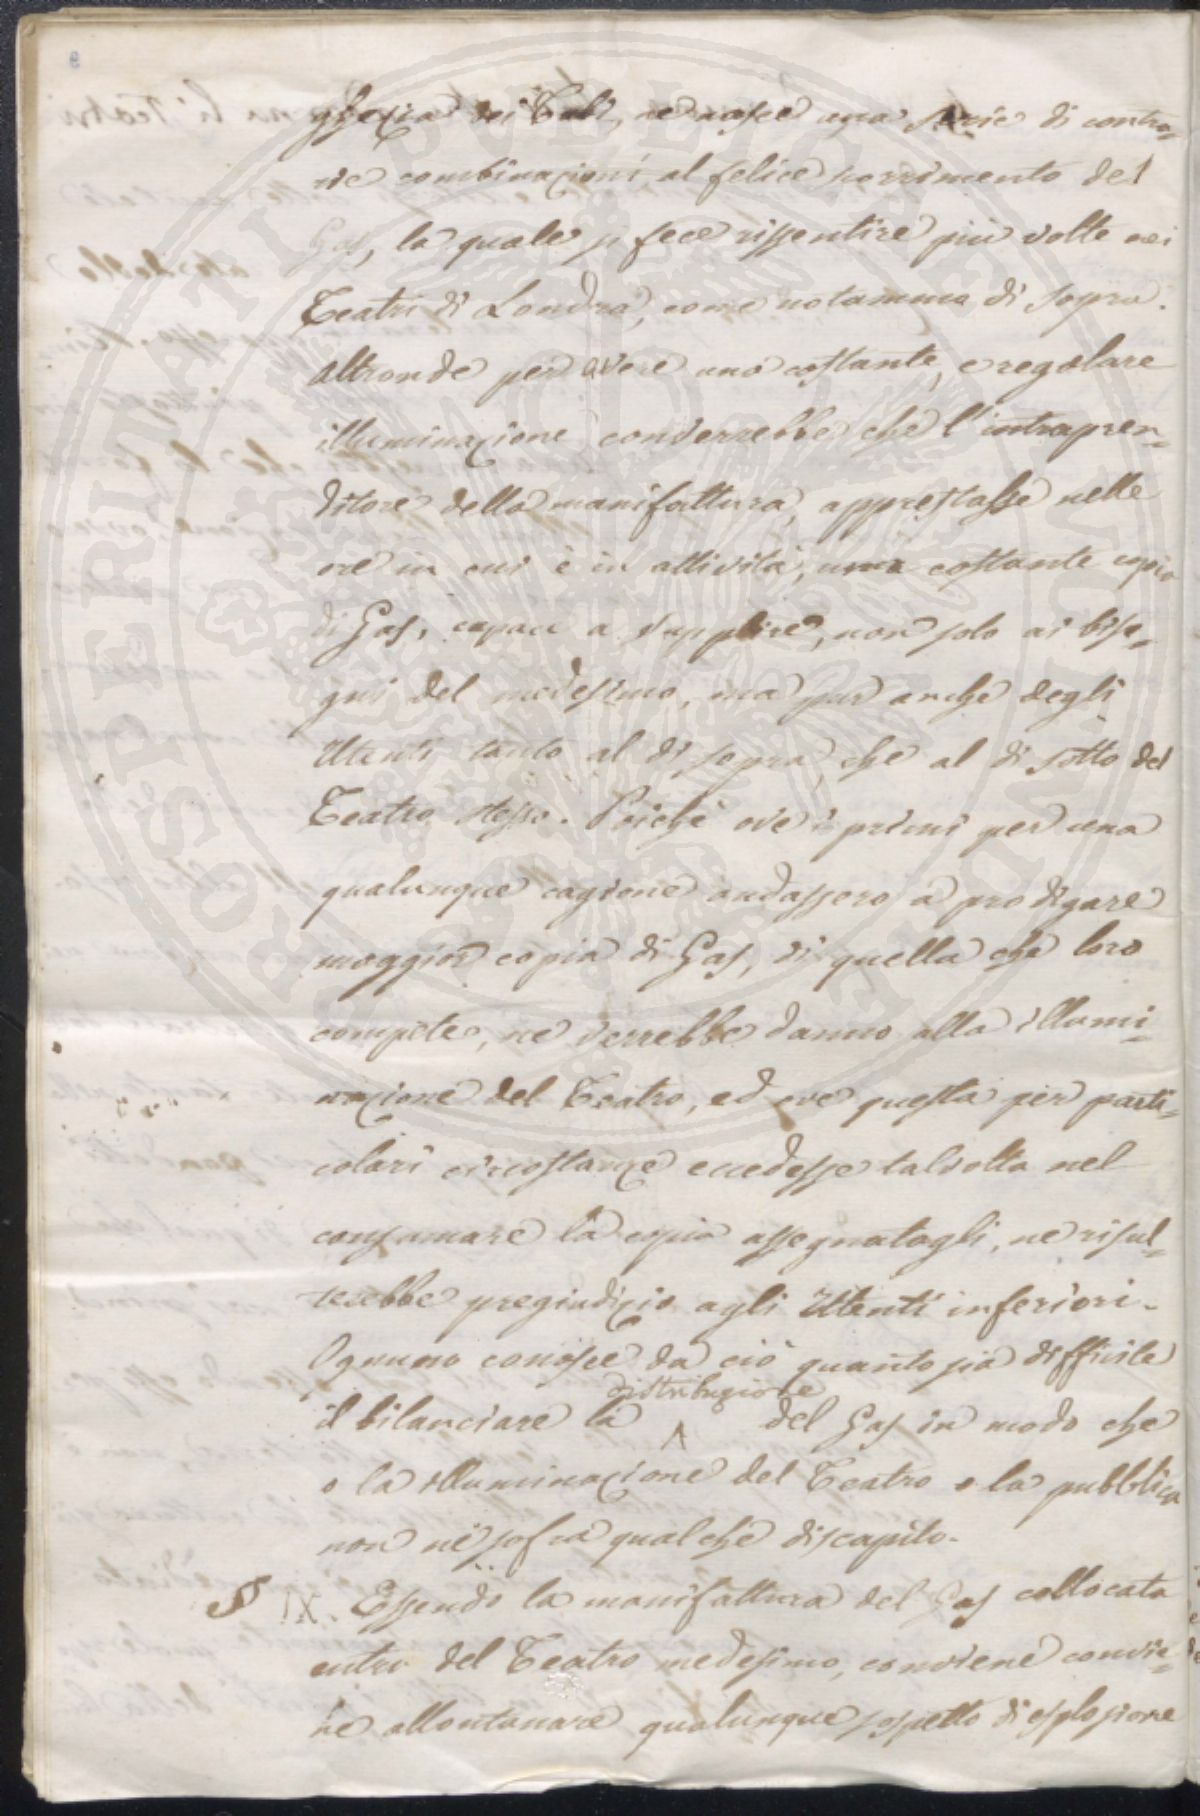 dei Tubi, ne nasce una serie di contra=
rie combinazioni al felice scorrimento del
Gas, la quale si fece rissentire più volte nei
Teatri di Londra, come notammo di sopra.
Altronde per avere una costante, e regolare
illuminazione converrebbe che l'intrapren=
ditore della manifattura, apprestasse nelle
ore in cui è in attività, una costante copia
di Gas, capace a supplire, non solo ai biso=
gni del medesimo, ma pur anche degli
Utenti tanto al di sopra, che al di sotto del
Teatro stesso. Poiché ove i primi per una
qualunque cagione andassero a prodigare
maggior copia di Gas, di quella che loro
compete, ne verrebbe danno alla illumi=
nazione del Teatro, ed ove questa per parti=
colari circostanze eccedesse talvolta nel
consumare la copia assegnatagli, ne risul=
terebbe pregiudizio agli Utenti inferiori.
Ognuno conosce da ciò quanto sia difficile
il bilanciare la distribuzione del Gas in modo che
o la illuminazione del Teatro o la pubblica
non ne soffra qualche discapito.
§ IX. Essendo la manifattura del Gas collocata
entro del Teatro medesimo, conviene convie=
ne allontanare qualunque sospetto di esplosione
PROSPERITATI PUBLICAE